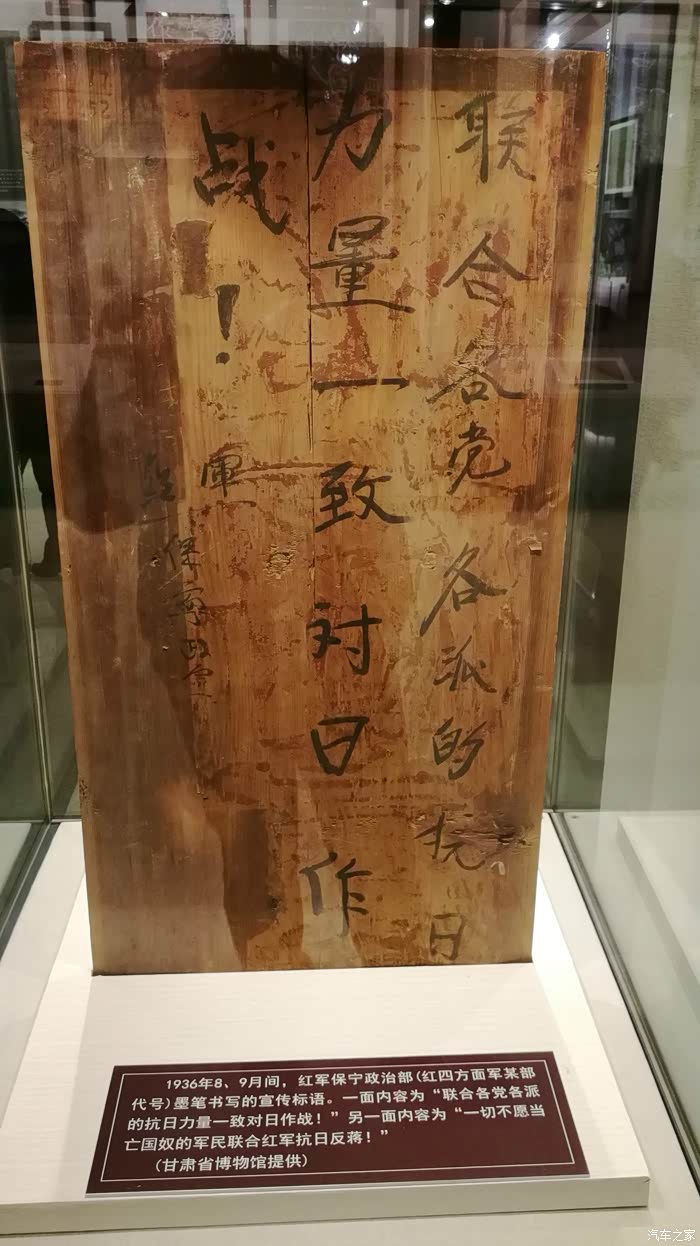 联合各党各派的抗日
力量一致对日作
战！
1936年8、9月间，红军保宁政治部(红四方面军某部
代号)墨笔书写的宣传标语。一面内容为“联合各党各派
的抗日力量一致对日作战！”另一面内容为“一切不愿当
亡国奴的军民联合红军抗日反蒋！”
(甘肃省博物馆提供)
汽车之家